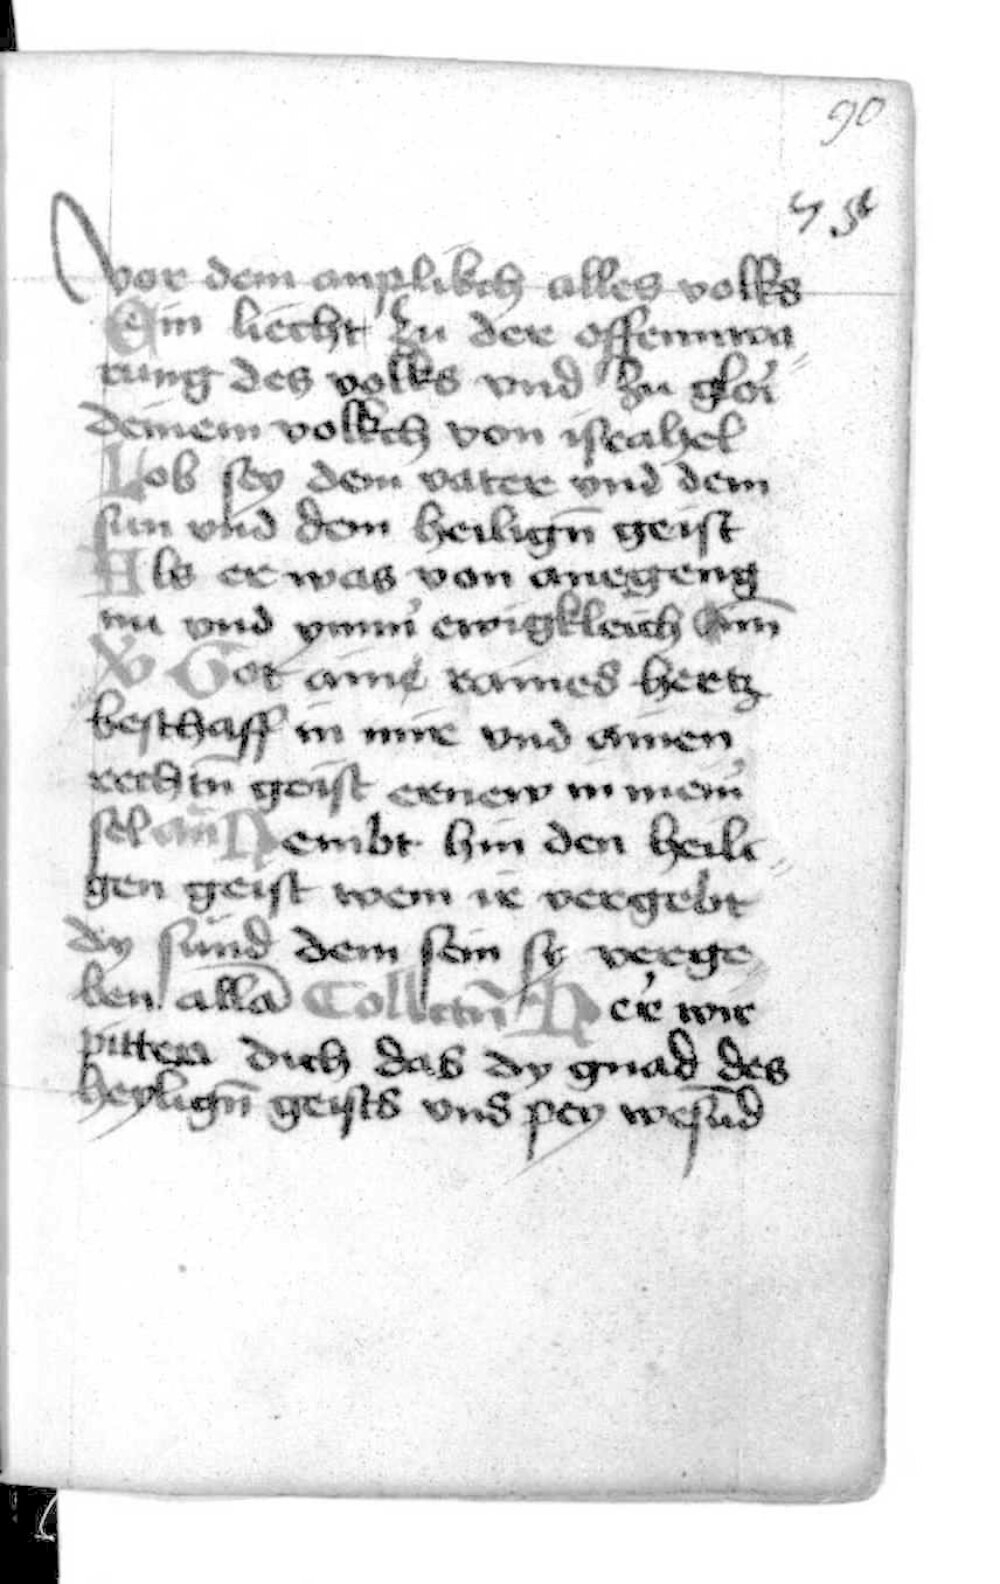 90
vor dem anplikch alles volks
Ein liecht zu der offennwa
rung des volks vnd zu gloi
deinem volkch von israhel
Lob sey dem vater vnd dem
sun vnd dem heilign̄ geist
Als er was von anegeng
nu vnd ymm̄ ewigkleich Am̄
V Got aine raines hertz
beschaff in mir vnd ainen
rechtn̄ geist ernew in mein̄
sel an̄ Nembt hin den heili
gen geist wem ir vergebt
dy sünd dem sein sy verge
ben alla Collectn̄ Her wir
pitten dich das dy gnad des
heylign̄ geists vns pey wesūd